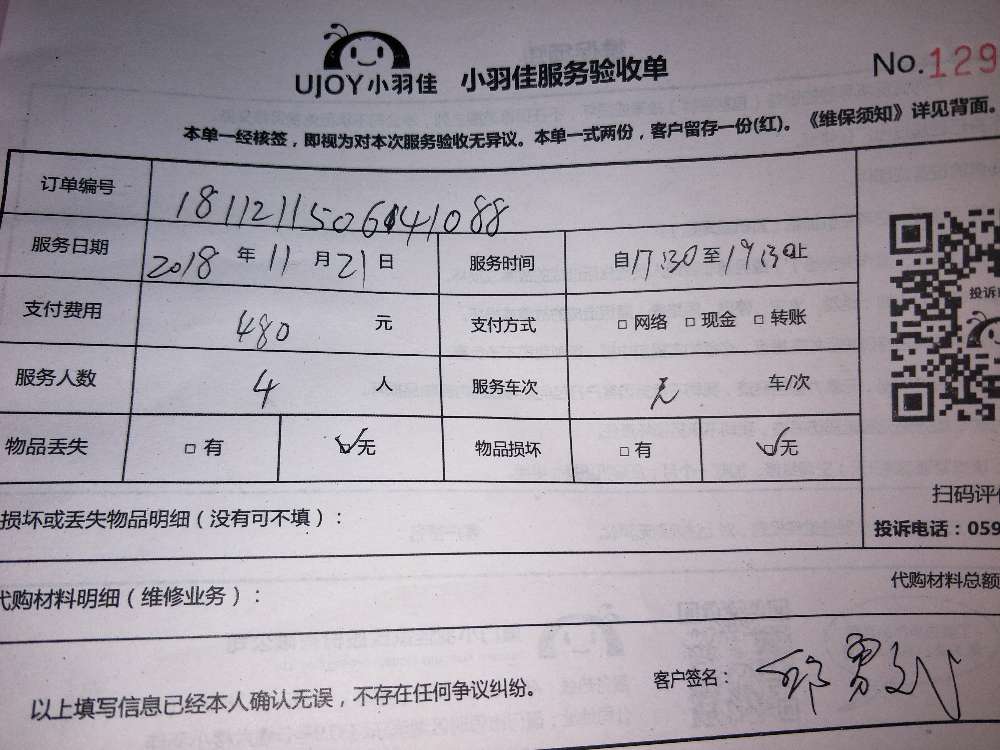 UJOY小羽佳 小羽佳服务验收单 No.129
本单一经核签，即视为对本次服务验收无异议。本单一式两份，客户留存一份(红)。《维保须知》详见背面。
订单编号 181121150641088
服务日期 2018 年 11 月 21 日 服务时间 自17:30至19:30止
支付费用 480 元 支付方式 □ 网络 □ 现金 □ 转账
服务人数 4 人 服务车次 车/次
物品丢失 □ 有 ☑无 物品损坏 □ 有 ☑无
投诉
扫码评
损坏或丢失物品明细（没有可不填）：
投诉电话：059
代购材料明细（维修业务）：
代购材料总额
以上填写信息已经本人确认无误，不存在任何争议纠纷。
客户签名：